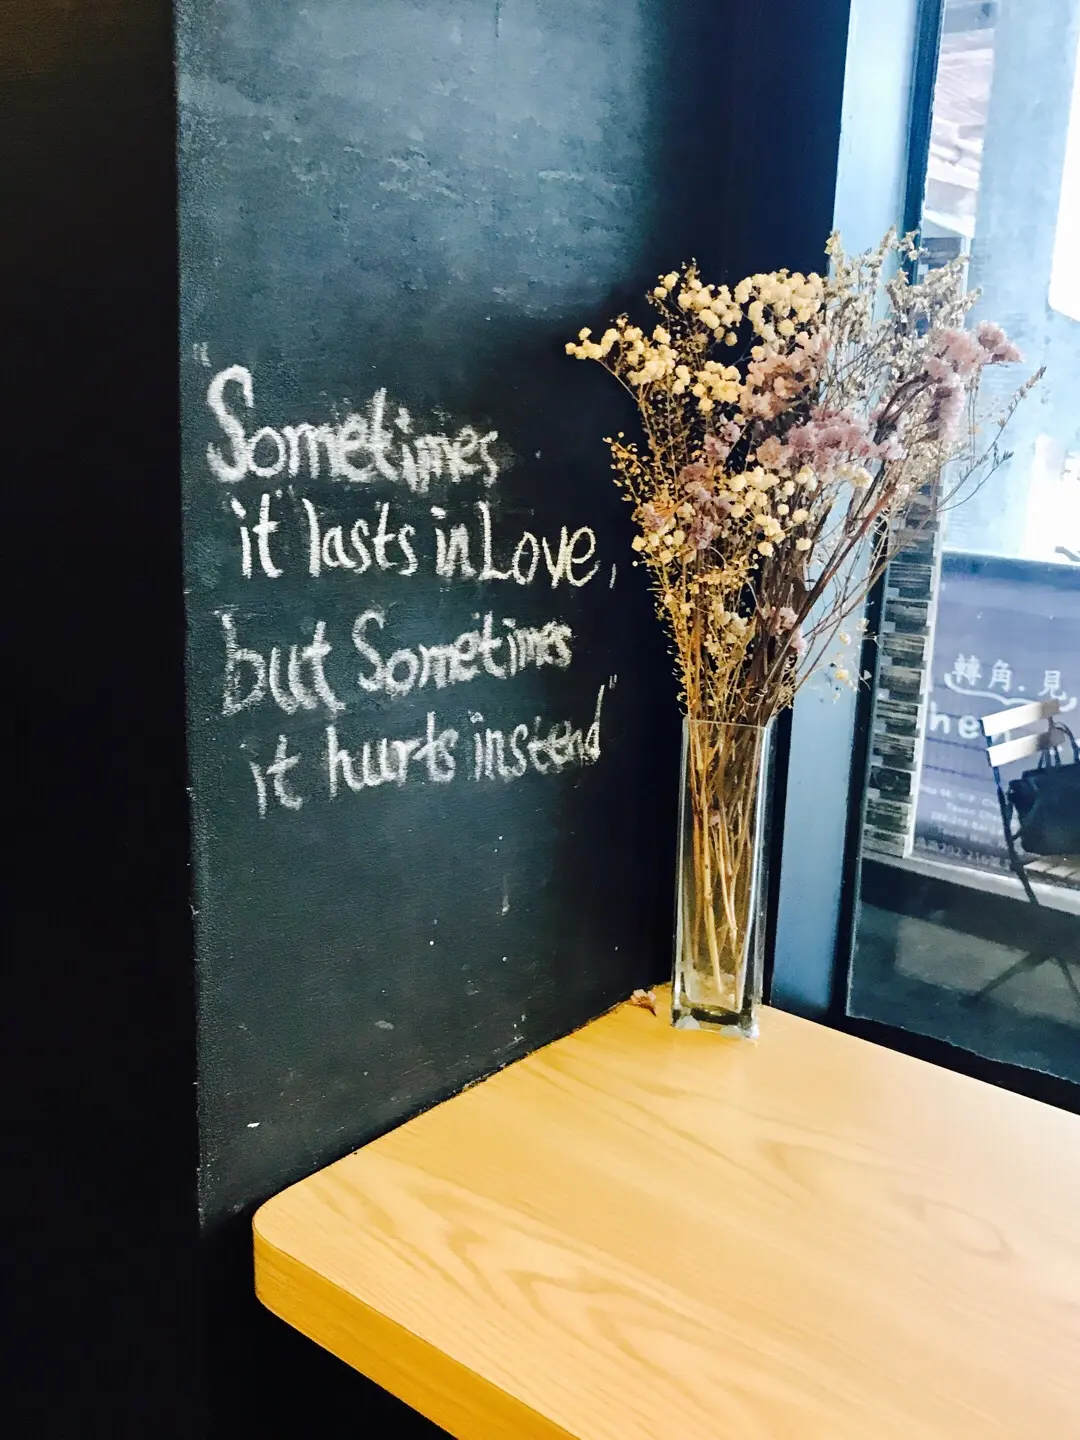 "Sometimes
it lasts in Love,
but Sometimes
it hurts instend"
轉角.見